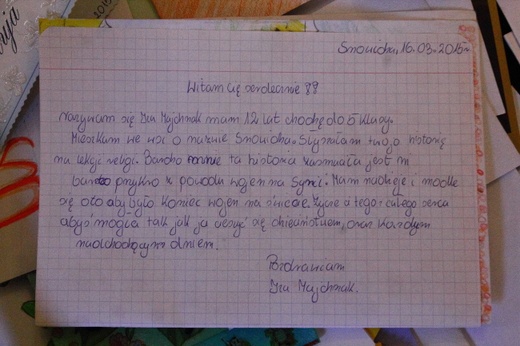 Smowidka, 16.03.2016r
Witam Cię serdecznie !!
Nazywam się Iza Majchrzak mam 12 lat chodzę do 5 klasy.
Mieszkam we wsi o nazwie Smowidka. Słyszałam twoją historię
na lekcji religi. Bardzo mnie ta historia zasmuciła jest m
bardzo przykro z powodu wojen na Syrii. Mam nadzieję i modle
się oto aby było koniec wojen na świecie. Życzę ci tego z całego serca
abyś mogła tak jak ja cieszyć się dzieciństwem, oraz każdym
nadchodzącym dniem.
Pozdrawiam
Iza Majchrzak.